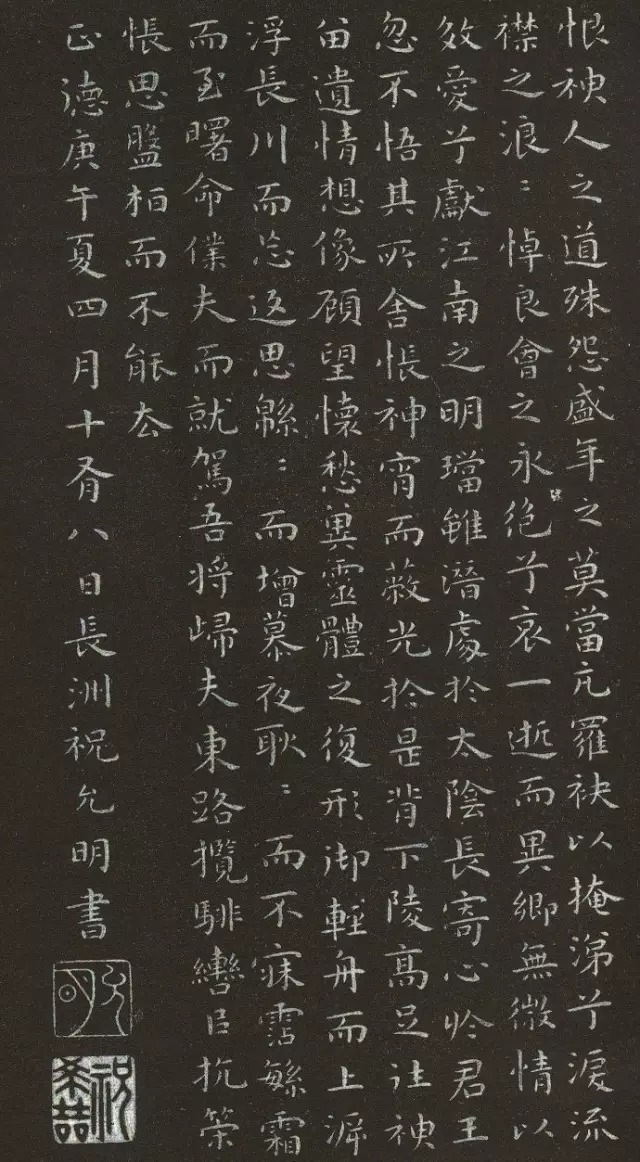 恨神人之道殊怨盛年之莫當亢羅袂以掩涕兮淚流
襟之浪〻悼良會之永絶兮哀一逝而異鄉無微情以
效愛兮獻江南之明璫雖潛處於太陰長寄心於君王
忽不悟其所舍悵神宵而蔽光於是背下陵高足往神
留遺情想像顧望懷愁兾靈體之復形御輕舟而上泝
浮長川而忘返思緜〻而增慕夜耿〻而不寐霑繁霜
而至曙命僕夫而就駕吾將歸夫東路攬騑轡以抗策
悵思盤桓而不能去
正德庚午夏四月十有八日長洲祝允明書
允明
祝希喆